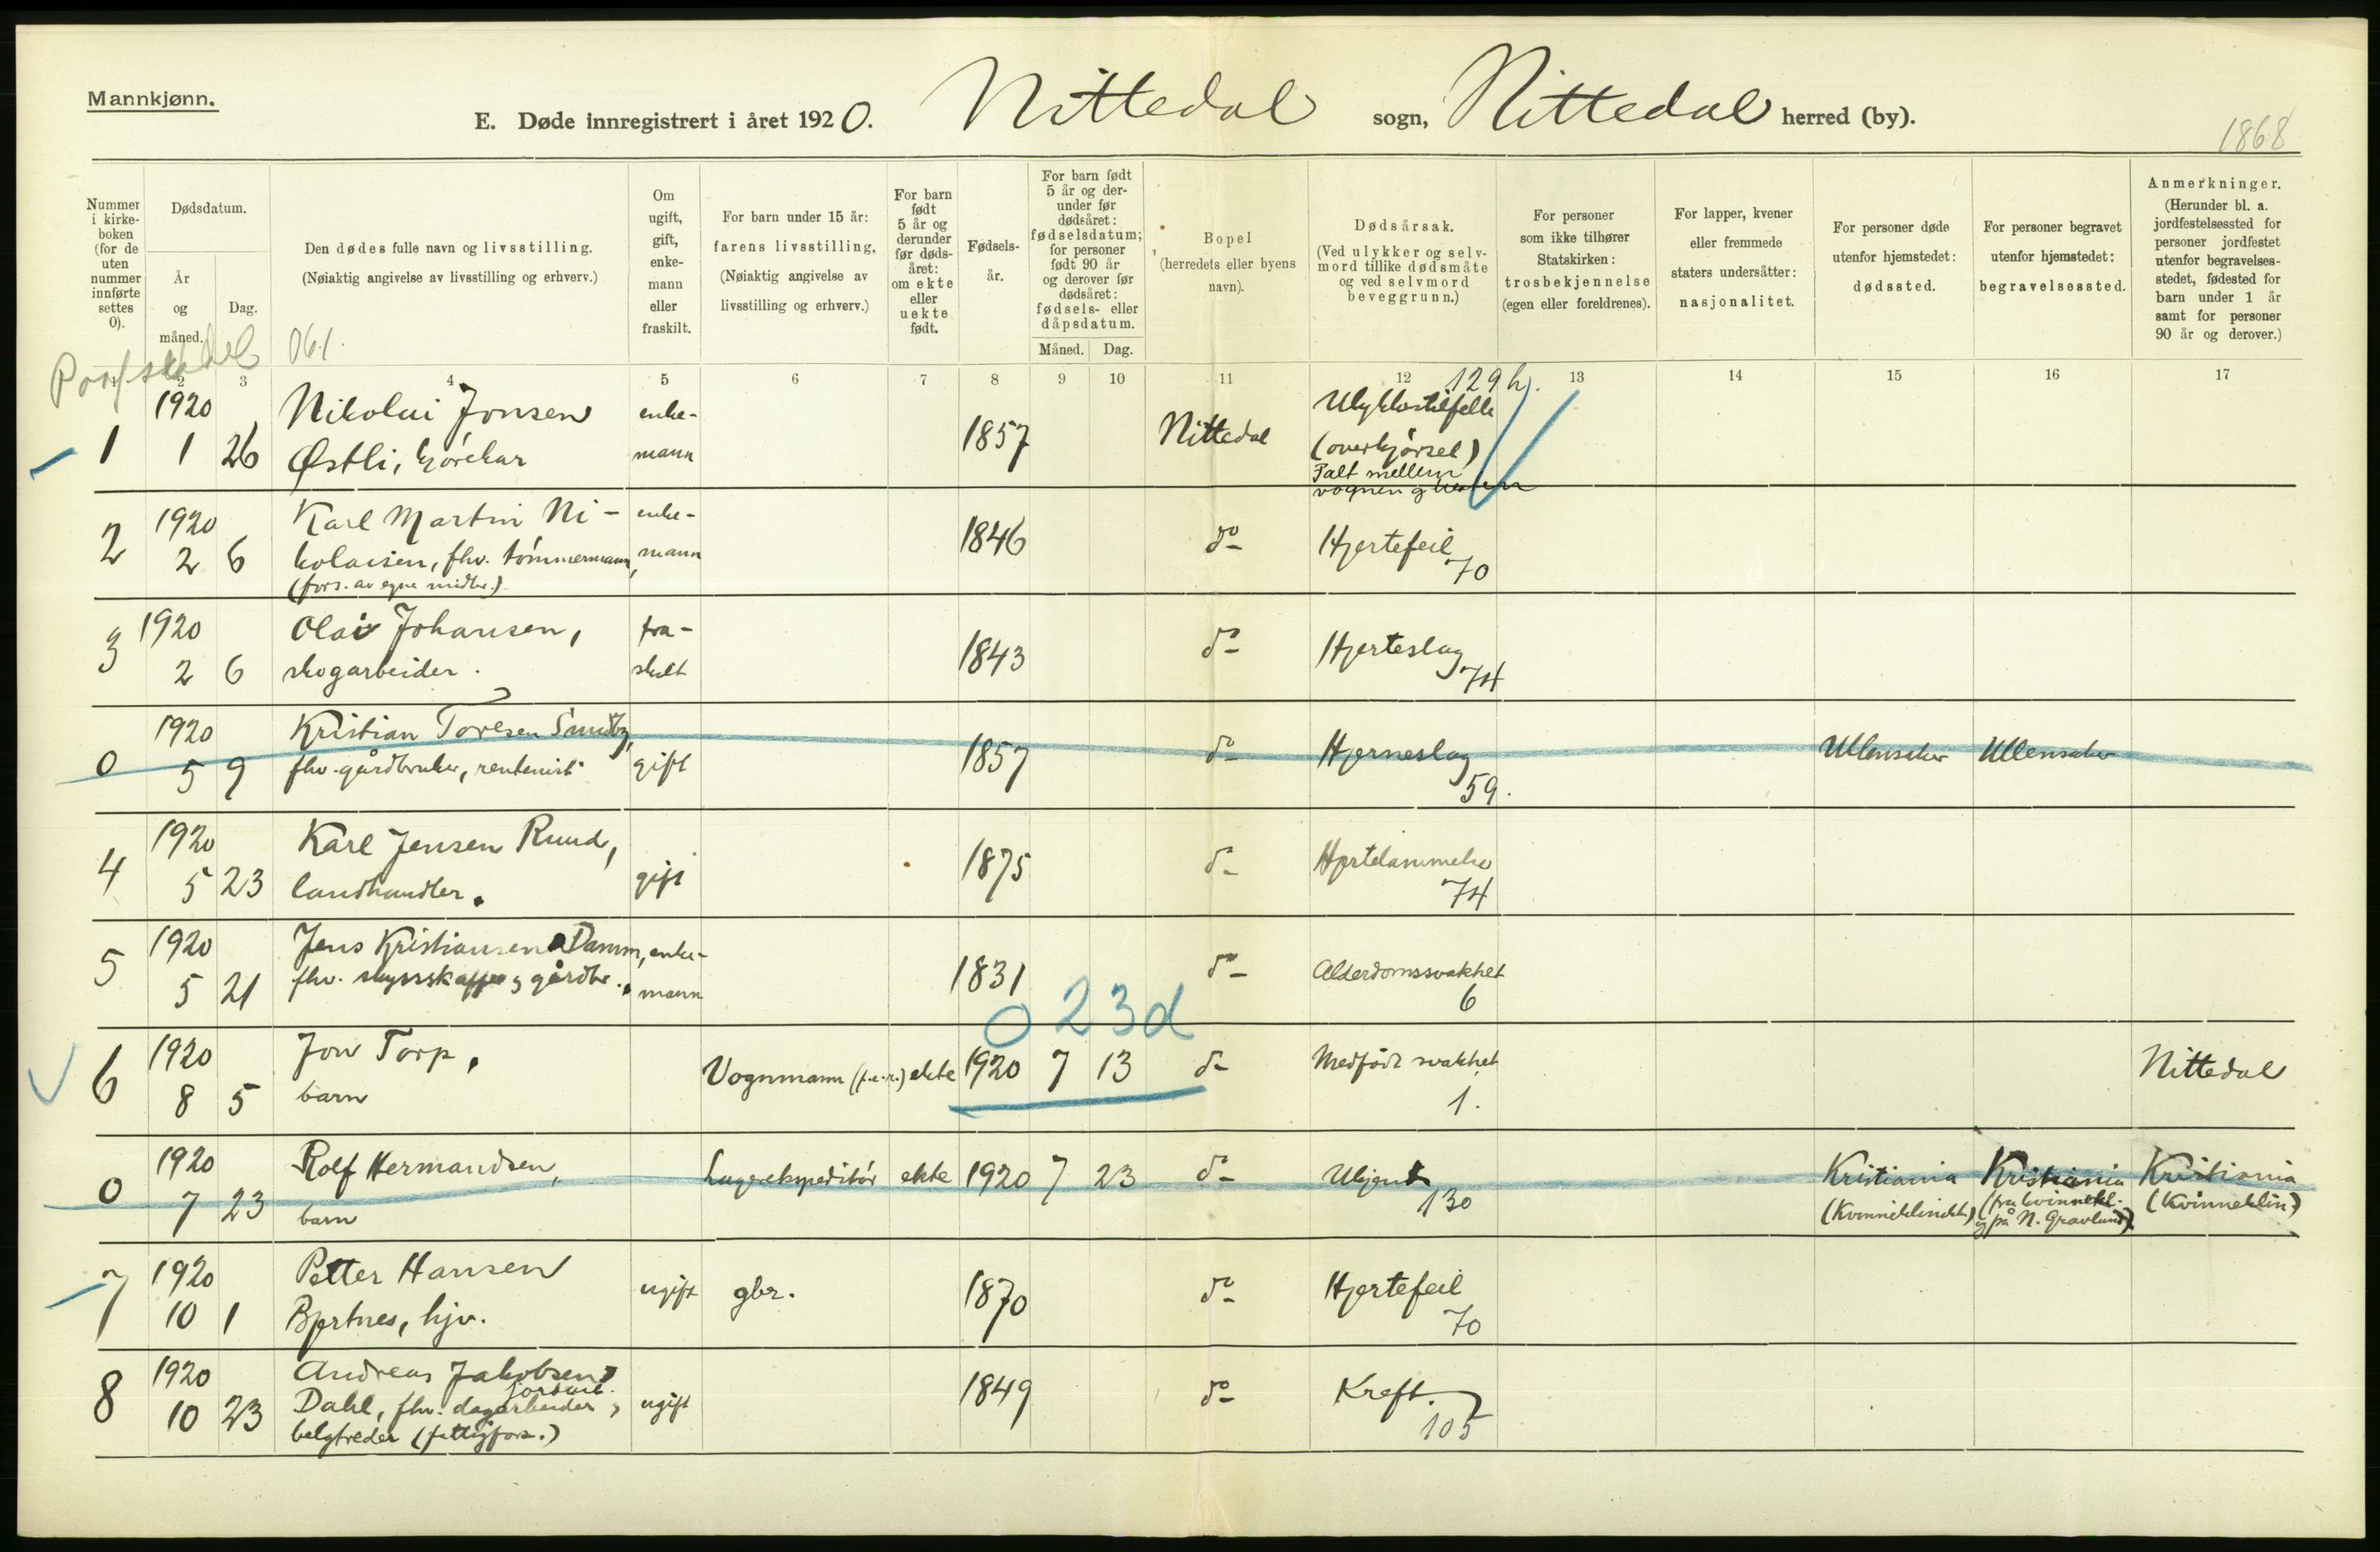 Mannkjønn.
E. Døde innregistrert i året 1920. Nittedal sogn, Nittedal herred (by).
1868
Nummer i kirke-boken (for de uten nummer innførte settes 0).
Dødsdatum.
År og måned.
Dag.
Den dødes fulle navn og livsstilling.
(Nøiaktig angivelse av livsstilling og erhverv.)
Om ugift, gift, enke-mann eller fraskilt.
For barn under 15 år:
farens livsstilling,
(Nøiaktig angivelse av
livsstilling og erhverv.)
For barn født 5 år og derunder før døds-året: om ekte eller uekte født.
Fødsels-år.
For barn født 5 år og der-under før dødsåret: fødselsdatum; for personer født 90 år og derover før dødsåret: fødsels- eller dåpsdatum.
Måned. Dag.
Bopel
(herredets eller byens navn).
Dødsårsak.
(Ved ulykker og selv-mord tillike dødsmåte og ved selvmord beveggrunn.)
For personer som ikke tilhører Statskirken: trosbekjennelse (egen eller foreldrenes).
For lapper, kvener eller fremmede staters undersåtter: nasjonalitet.
For personer døde utenfor hjemstedet: dødssted.
For personer begravet utenfor hjemstedet: begravelsessted.
Anmerkninger.
(Herunder bl. a. jordfestelsessted for personer jordfestet utenfor begravelses-stedet, fødested for barn under 1 år samt for personer 90 år og derover.)
061.
1 2 3 4 5 6 7 8 9 10 11 12 13 14 15 16 17
129 h).
1920 Nikolai Jonsen enke- Ulykkestilfelle
1 1 26 Østli, kjørekar mann 1857 Nittedal (overkjørsel)
Falt mellem
vognen og hesten
1920 Karl Martin Ni- enke-
2 2 6 kolaisen, fhv. tømmermann, mann 1846 do Hjertefeil
(fors. av egne midler.) 70
1920 Olai Johansen, fra-
3 2 6 skogarbeider. skilt 1843 do Hjerteslag
74
1920 Kristian Toresen Smedby,
0 5 9 fhv. gårdbruker, rentenist gift 1857 do Hjerneslag Ullensaker Ullensaker
59.
1920 Karl Jensen Ruud,
4 5 23 landhandler. gift 1875 do Hjertelammelse
74
1920 Jens Kristiansen Damm, enke-
5 5 21 fhv. skyssskaffer og gårdbr. mann 1831 do Alderdomssvakhet
6
0 23d
1920 Jon Torp,
6 8 5 barn Vognmann ekte 1920 7 13 do Medfødt svakhet Nittedal
1.
1920 Rolf Hermandsen,
0 7 23 barn Lagerekspeditør ekte 1920 7 23 do Ukjent Kristiania Kristiania Kristiania
130 (Kvinneklinikk) (fra kvinnekl. (Kvinneklin.)
og på N. Gravlund)
1920 Petter Hansen
7 10 1 Bjertnes, hjv. ugift gbr. 1870 do Hjertefeil
70
1920 Andreas Jakobsen
jordarb.
8 10 23 Dahl, fhv. dagarbeider, ugift 1849 do Kreft.
belgtreder (fattigfors.) 105